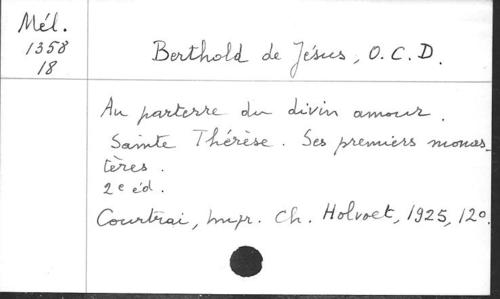 Mél.
1358
18
Berthold de Jésus, O.C.D.
Au parterre du divin amour.
Sainte Thérèse. Ses premiers monas_
tères.
2e éd.
Courtrai, Impr. Ch. Holvoet, 1925, 12o.